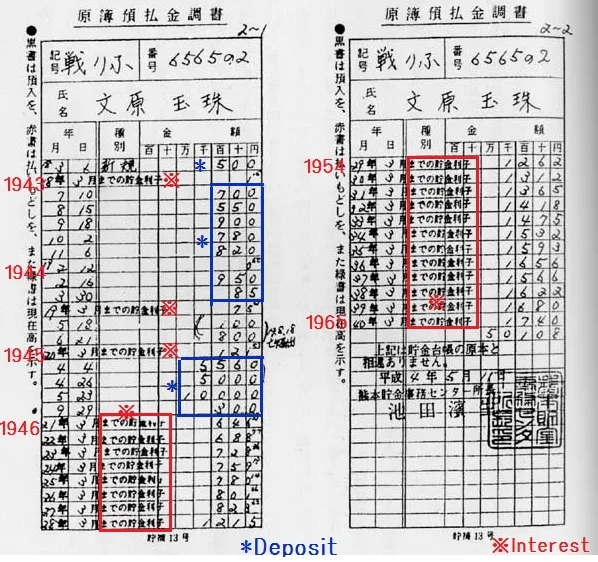 原簿預払金調書
2~1
●黒書は預入を、赤書は払いもどしを、また緑書は現在高を示す。●
記号 戦りふ 番号 656502
氏名 文原玉珠
年 月 日 種別 金額 百 十 万 千 百 十 円
18 3 6 新規 * 500
1943 18年 3月までの貯金利子 ※
7 10 700
8 15 550
9 18 900
10 2 780
*
11 6 820
1944 2 12
2 16 950
3 30 85
19年 3月までの貯金利子 ※ 75
5 18 100
6 21 800
1945 20年 3月までの貯金利子 ※
4 4 5560
* 4 26 5000
5 23 10000
9 29 300
※
1946 21年 3月までの貯金利子 646
22年 3月までの貯金利子 688
23年 3月までの貯金利子 728
24年 3月までの貯金利子 759
25年 3月までの貯金利子 787
26年 3月までの貯金利子 801
27年 3月までの貯金利子 823
28年 3月までの貯金利子 1215
貯補13号
*Deposit
原簿預払金調書
2~2
●黒書は預入を、赤書は払いもどしを、また緑書は現在高を示す。
記号 戦りふ 番号 656502
氏名 文原玉珠
年 月 日 種別 金額 百 十 万 千 百 十 円
1954 29年 3月までの貯金利子 1262
30年 3月までの貯金利子 1312
31年 3月までの貯金利子 1365
32年 3月までの貯金利子 1418
33年 3月までの貯金利子 1475
34年 3月までの貯金利子 1532
35年 3月までの貯金利子 1593
36年 3月までの貯金利子 1656
37年 3月までの貯金利子 1566
38年 3月までの貯金利子 1622
※
39年 3月までの貯金利子 1680
1965 40年 3月までの貯金利子 1740
50108
上記は貯金台帳の原本と
相違ありません。
平成4年5月11日
熊本貯金事務センター所長
池田濱
貯補13号
※Interest